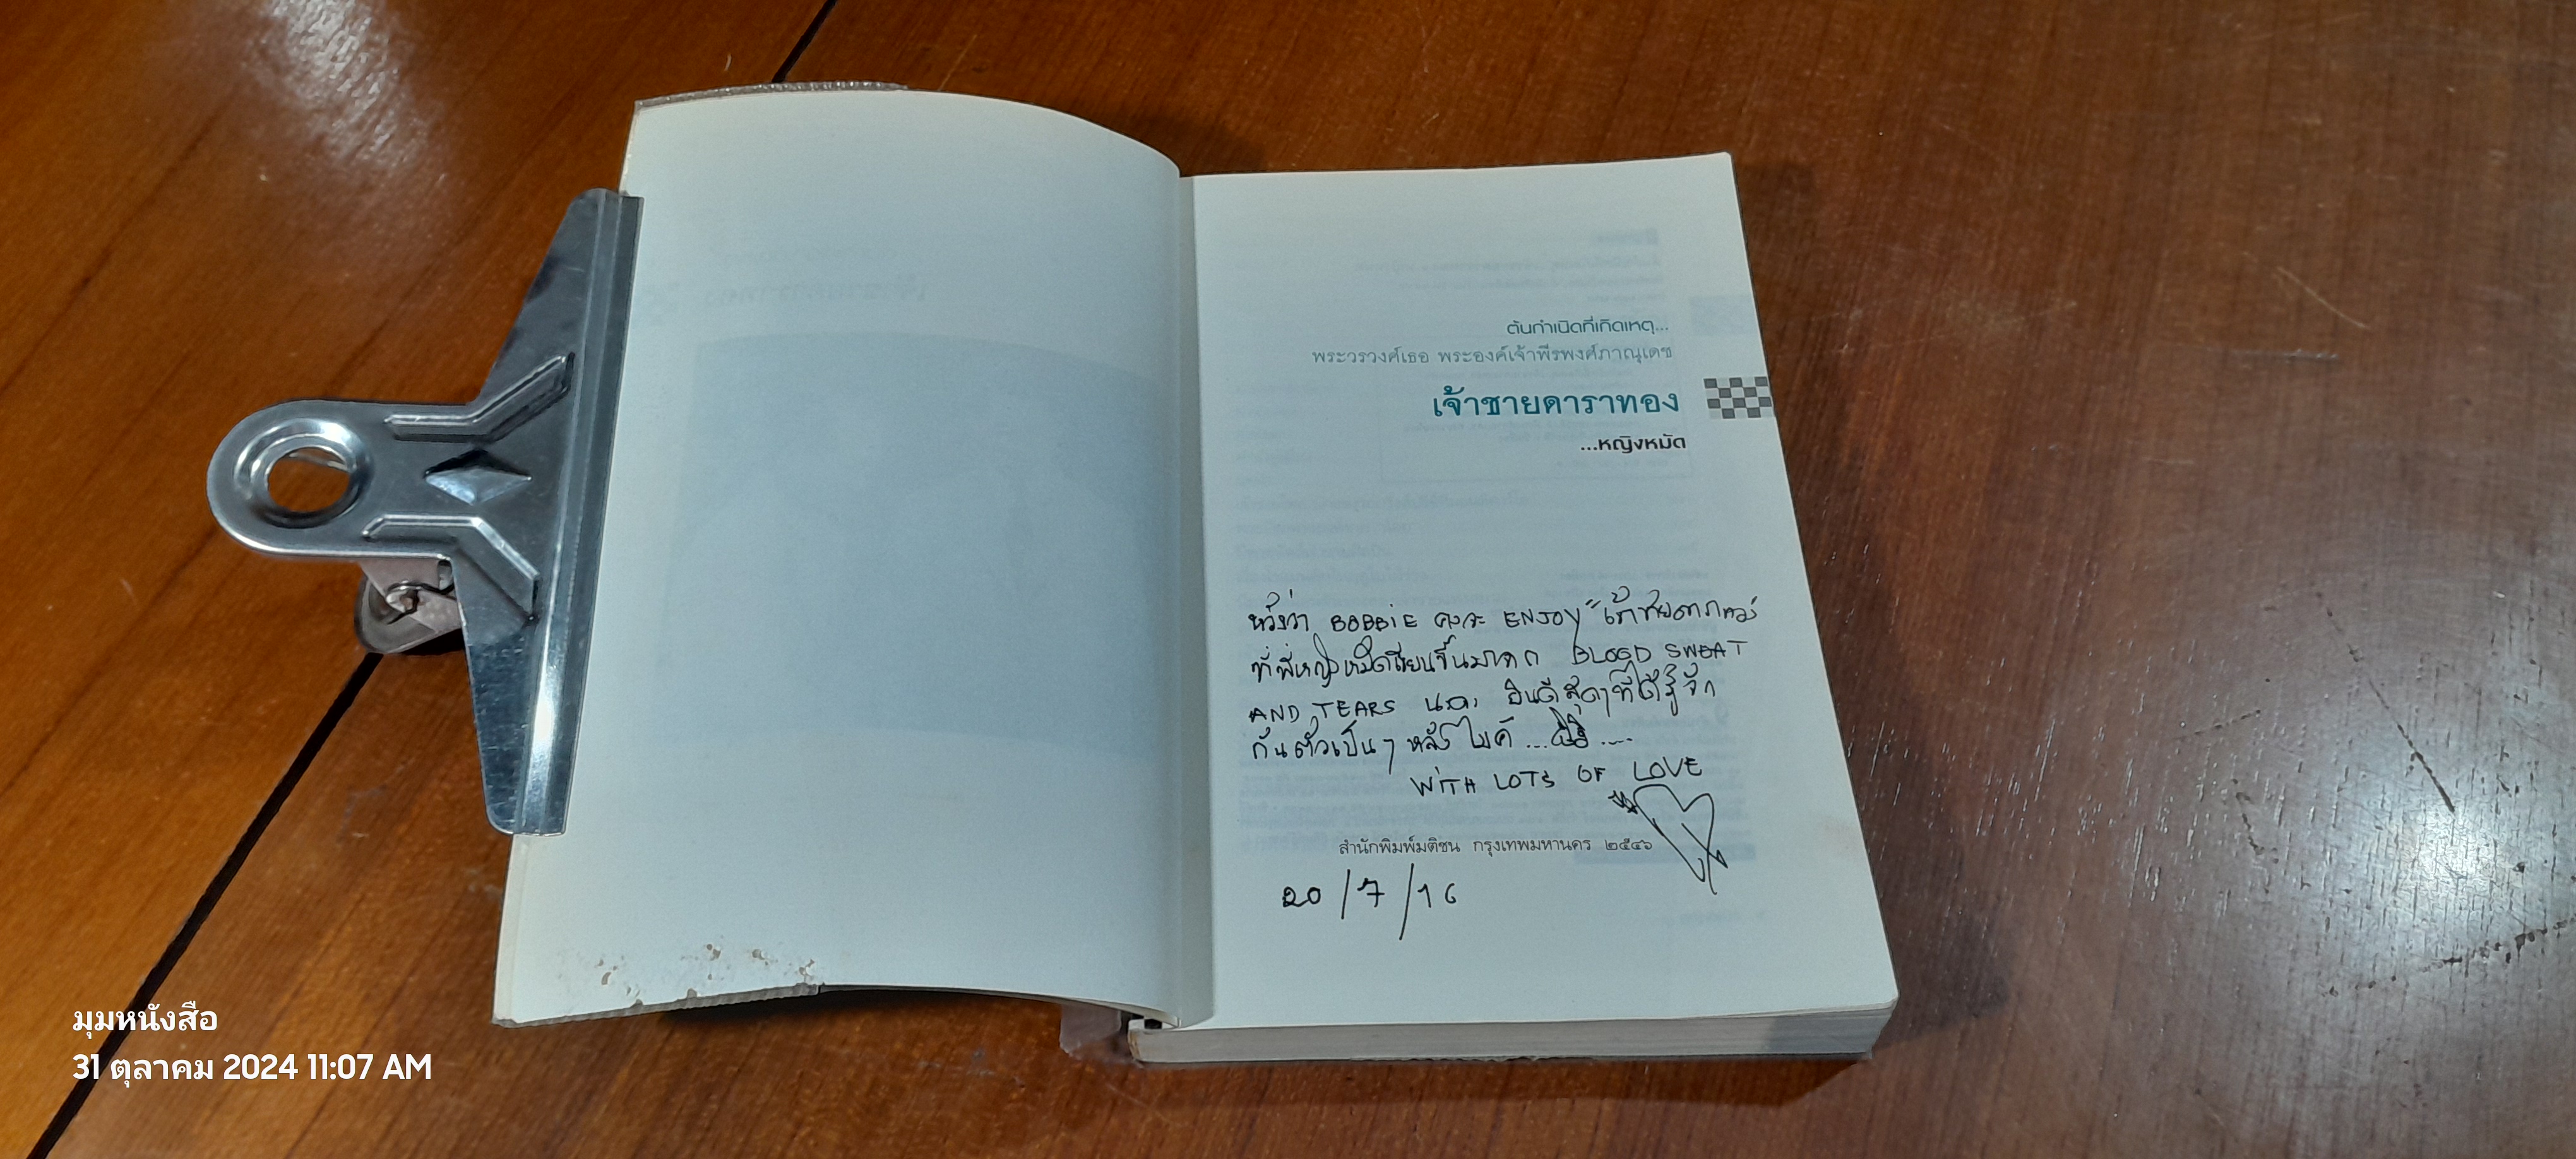 ต้นกำเนิดที่เกิดเหตุ...
พระวรวงศ์เธอ พระองค์เจ้าพีรพงศ์ภาณุเดช
เจ้าชายดาราทอง
...หญิงหมัด
หวังว่า BOBBiE คงจะ ENJOY "เจ้าชายดาราทอง
ที่พี่หญิงหมัดเขียนขึ้นมาจาก BLOOD SWEAT
AND TEARS และ ยินดีสุดๆที่ได้รู้จัก
กันตัวเป็นๆ หลังไมค์ ...
WiTH LOTS OF LOVE
สำนักพิมพ์มติชน กรุงเทพมหานคร ๒๕๔๖
20/7/16
มุมหนังสือ
31 ตุลาคม 2024 11:07 AM